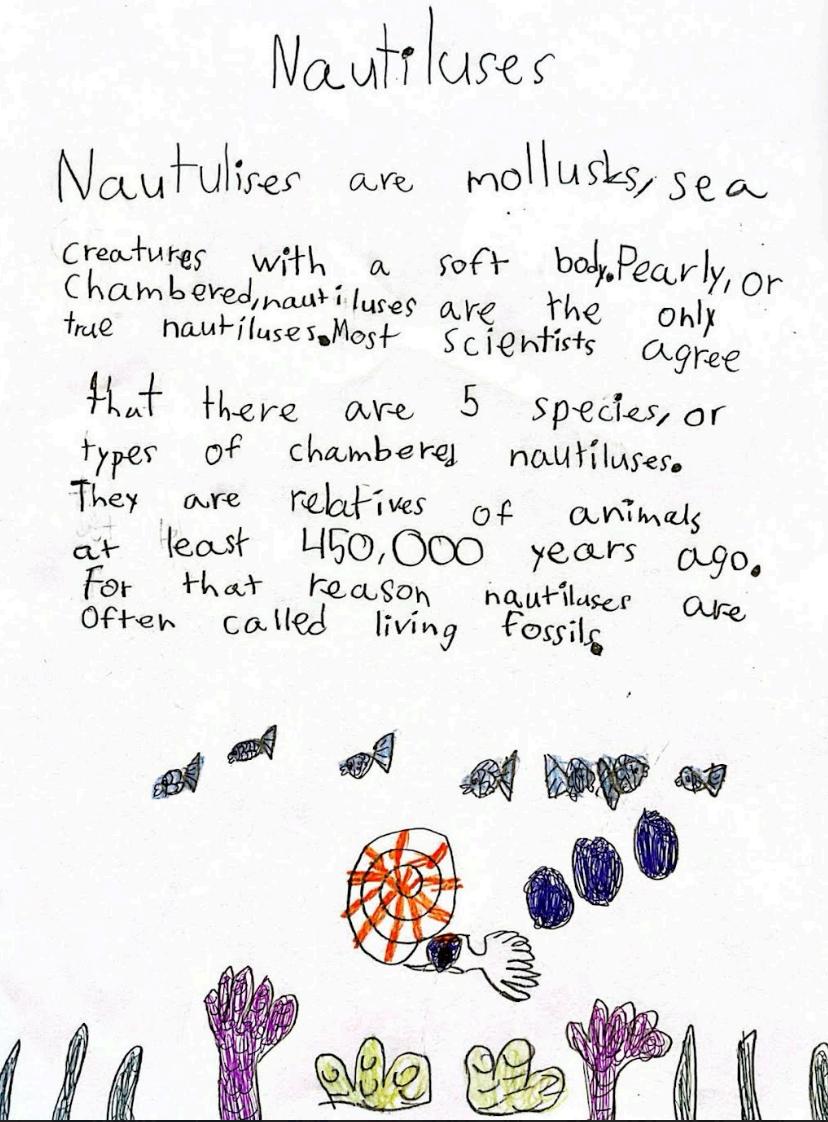 Nautiluses
Nautulises are mollusks, sea
creatures with a soft body. Pearly, or
Chambered, nautiluses are the only
true nautiluses. Most scientists agree
that there are 5 species, or
types of chambered nautiluses.
They are relatives of animals
at least 450,000 years ago.
For that reason nautiluses are
Often called living fossils.